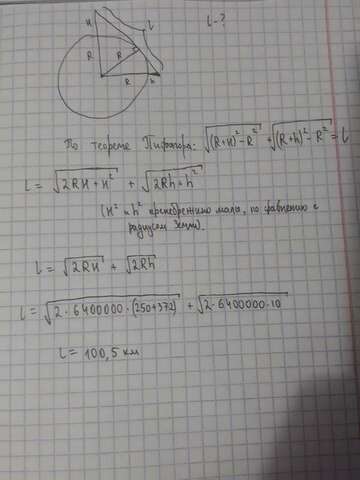 H l l - ?
R R
R h
По теореме Пифагора: √((R+H)² - R²) + √((R+h)² - R²) = l
l = √(2RH + H²) + √(2Rh + h²)
(H² и h² пренебрежимо малы, по сравнению с
радиусом Земли).
l = √(2RH) + √(2Rh)
l = √(2 · 6400000 · (250+372)) + √(2 · 6400000 · 10)
l = 100,5 км